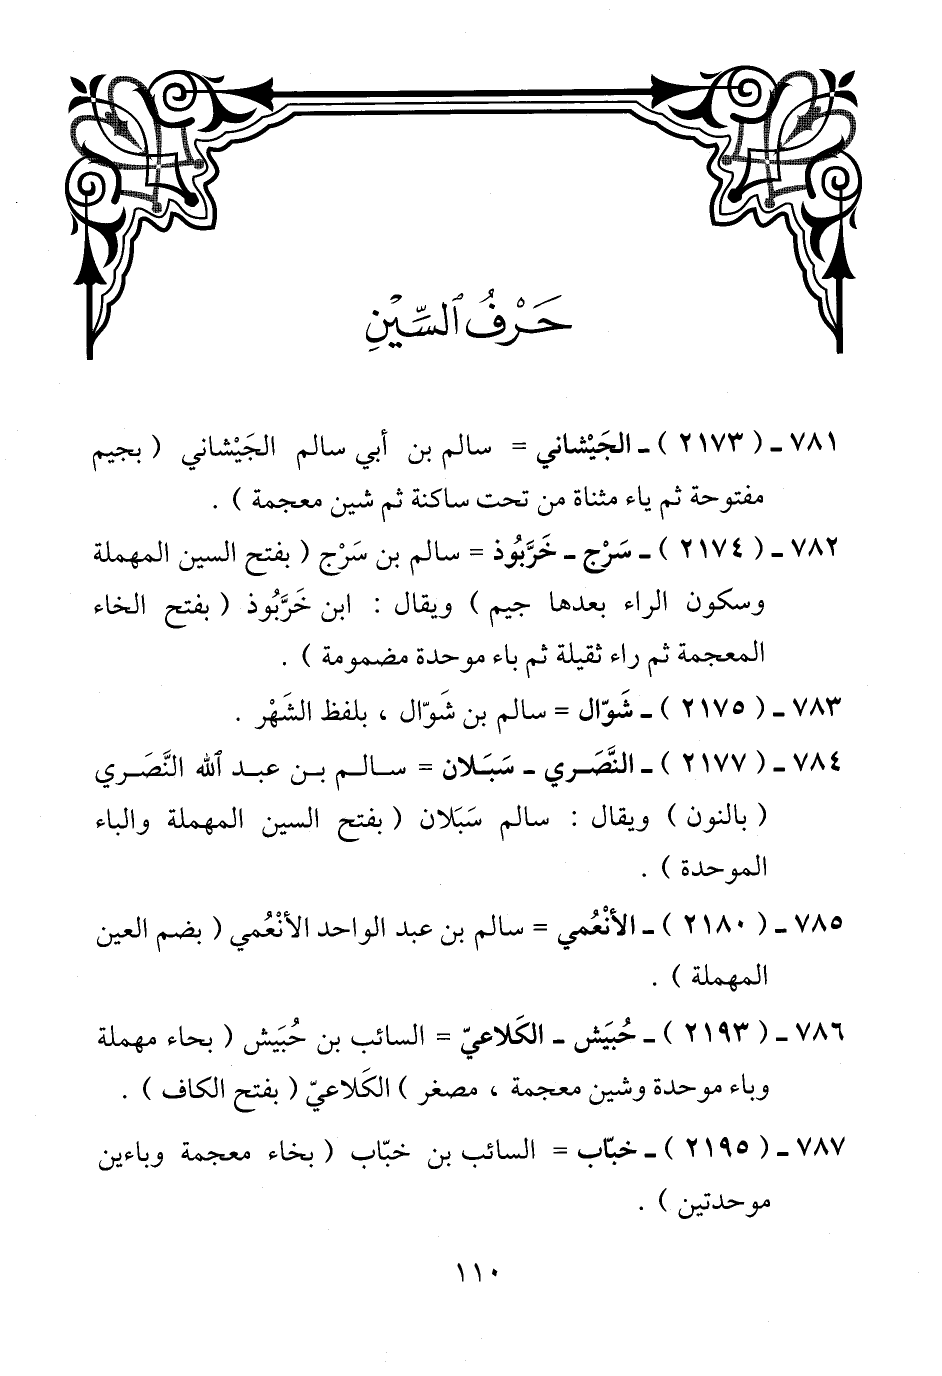 حَرْفُ ٱلسِّيْنِ
٧٨١ ـ ( ٢١٧٣ ) ـ الجَيْشاني = سالم بن أبي سالم الجَيْشاني ( بجيم
مفتوحة ثم ياء مثناة من تحت ساكنة ثم شين معجمة ) .
٧٨٢ ـ ( ٢١٧٤ ) ـ سَرْج ـ خَرَّبُوذ = سالم بن سَرْج ( بفتح السين المهملة
وسكون الراء بعدها جيم ) ويقال : ابن خَرَّبُوذ ( بفتح الخاء
المعجمة ثم راء ثقيلة ثم باء موحدة مضمومة ) .
٧٨٣ ـ ( ٢١٧٥ ) ـ شَوّال = سالم بن شَوّال ، بلفظ الشَهْر .
٧٨٤ ـ ( ٢١٧٧ ) ـ النَّصَـري ـ سَبَـلان = سـالـم بـن عبـد ٱلله النَّصَـري
( بالنون ) ويقال : سالم سَبَلان ( بفتح السين المهملة والباء
الموحدة ) .
٧٨٥ ـ ( ٢١٨٠ ) ـ الأنْعُمي = سالم بن عبد الواحد الأنْعُمي ( بضم العين
المهملة ) .
٧٨٦ ـ ( ٢١٩٣ ) ـ حُبَيَش ـ الكَلاعيّ = السائب بن حُبَيَش ( بحاء مهملة
وباء موحدة وشين معجمة ، مصغر ) الكَلاعيّ ( بفتح الكاف ) .
٧٨٧ ـ ( ٢١٩٥ ) ـ خبّاب = السائب بن خبّاب ( بخاء معجمة وباءين
موحدتين ) .
١١٠